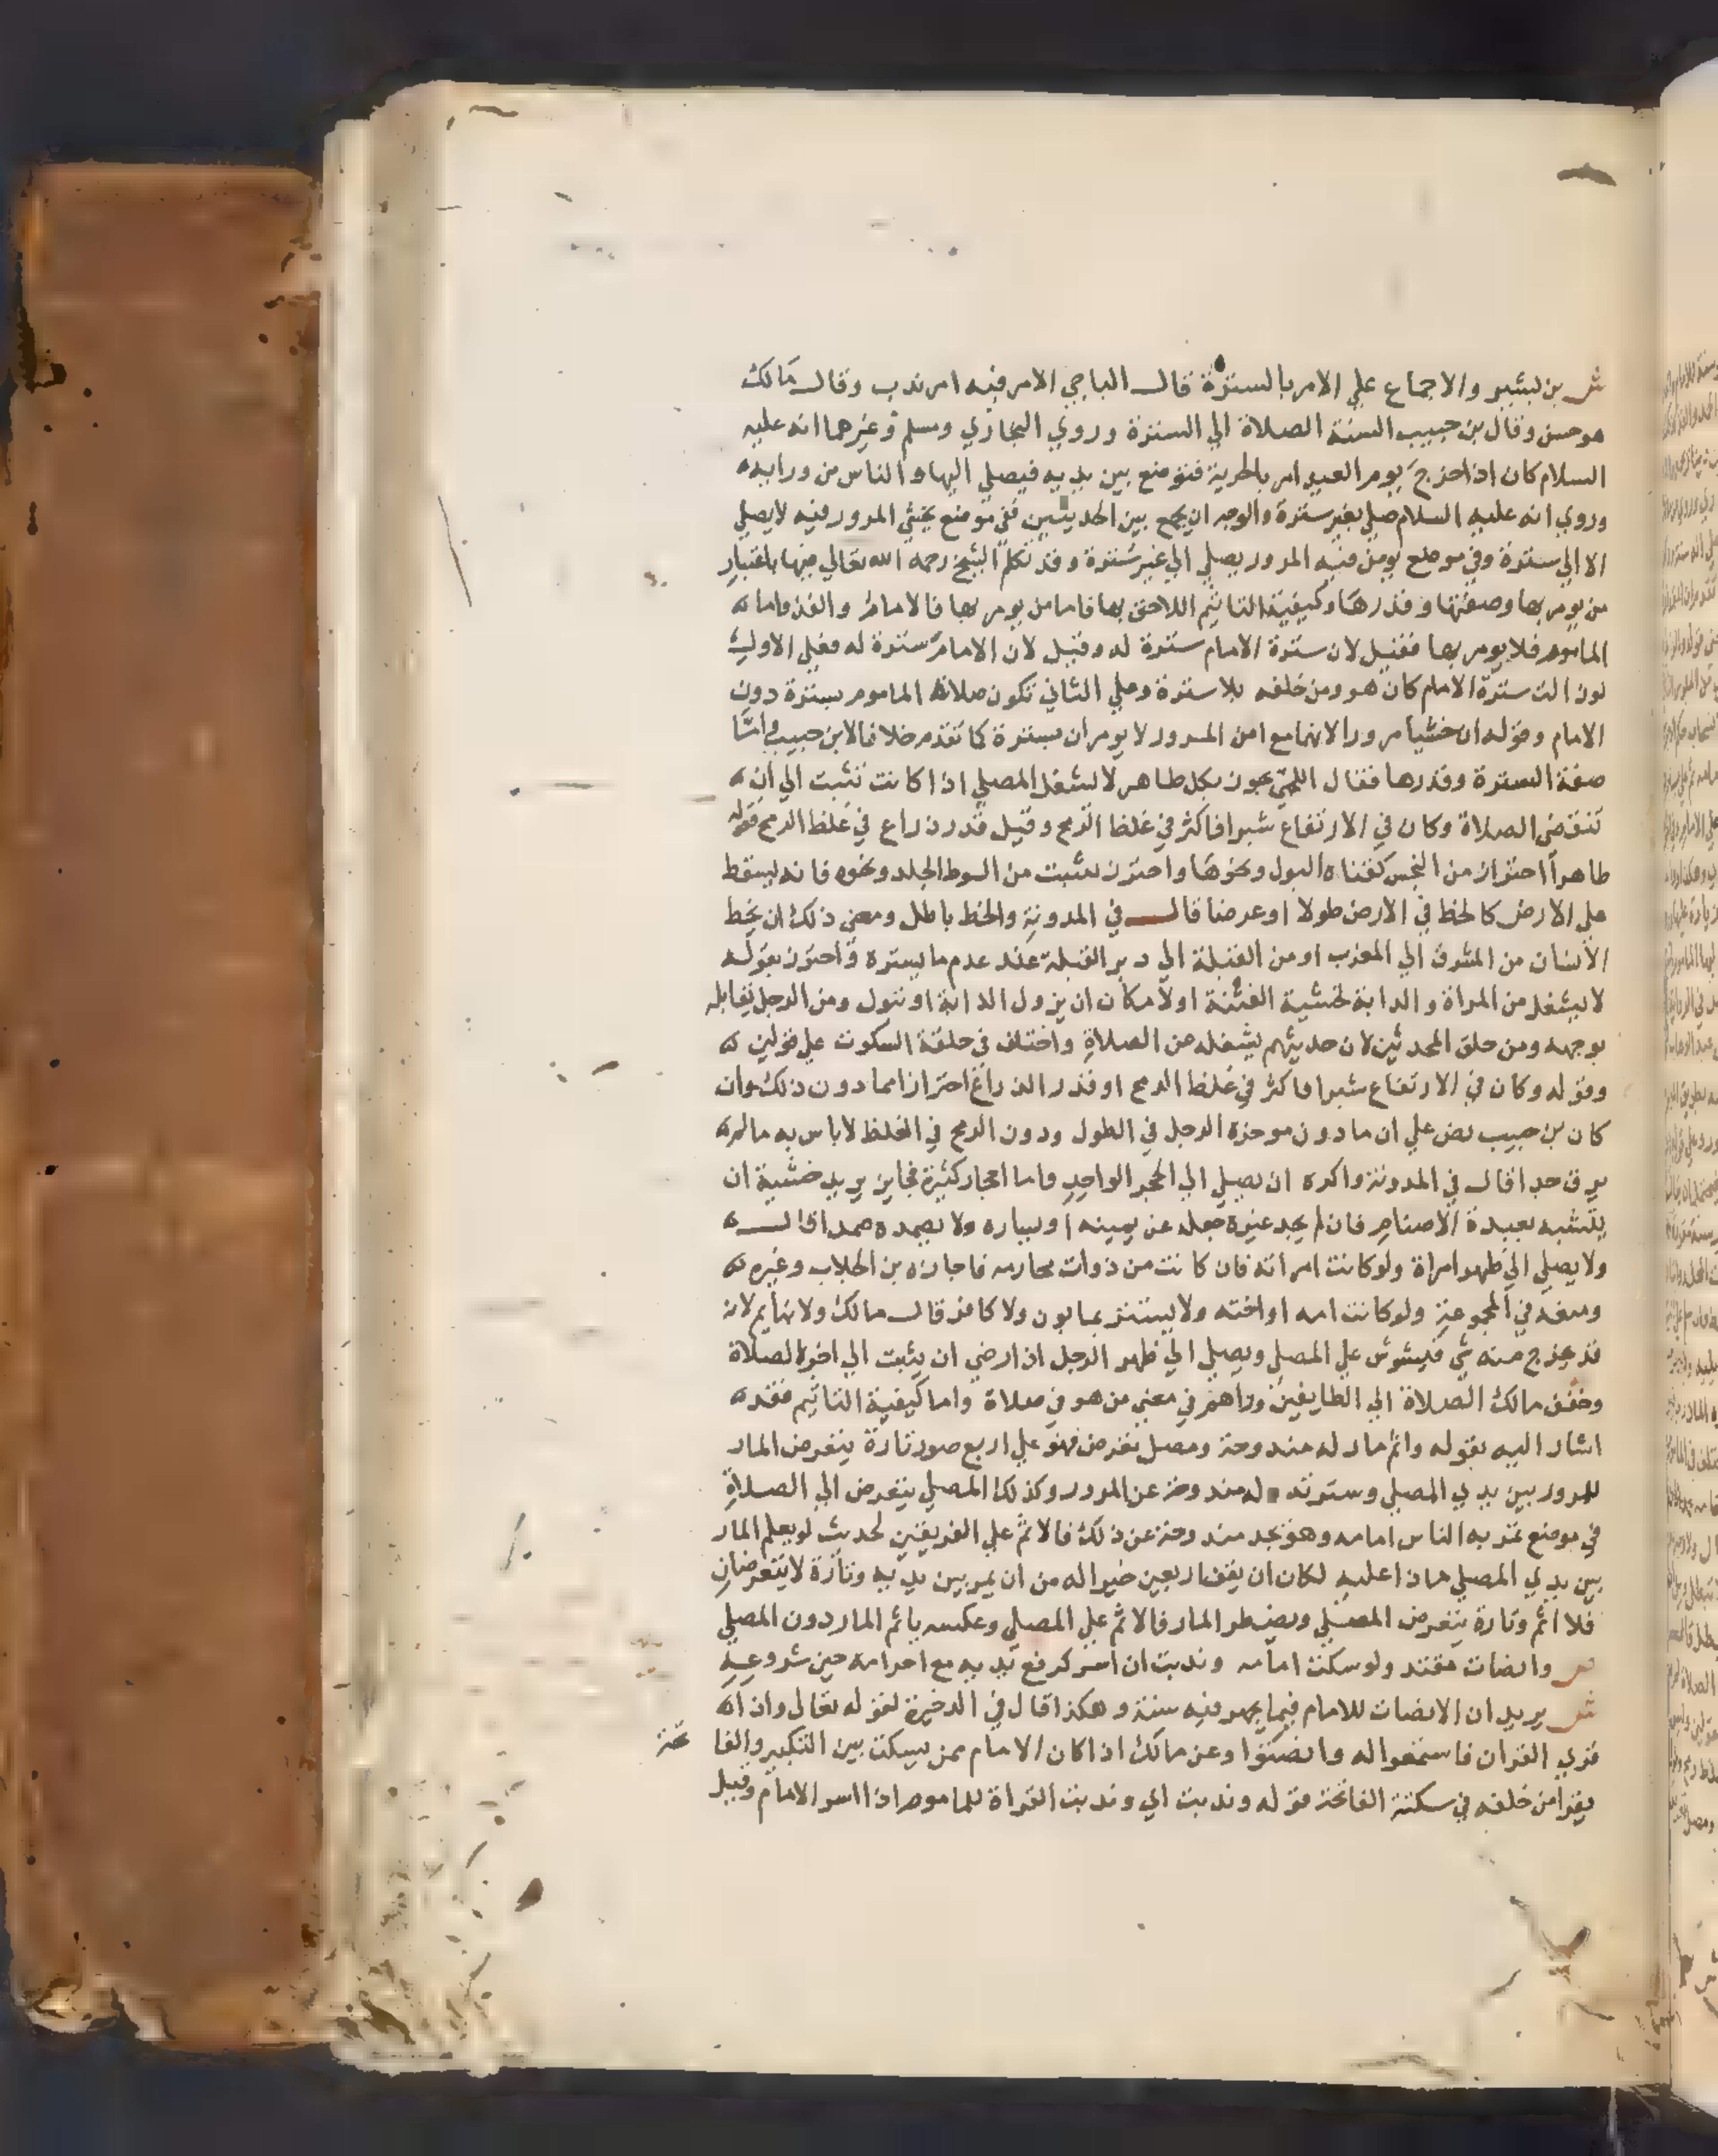 ش بن بشير والاجماع علي الامر بالسترة قال الباجي الامر فيه امر ندب وقال مالك
هو حسن وقال بن حبيب السنة الصلاة الي السترة وروي البخاري ومسلم وغيرهما انه عليه
السلام كان اذا خرج يوم العيد امر بالحربة فتوضع بين يديه فيصلي اليها والناس من ورايه
وروي انه عليه السلام صلي بغير سترة والوجه ان يجمع بين الحديثين ففي موضع يخشي المرور فيه لا يصلي
الا الي سترة وفي موضع يومن فيه المرور يصلي الي غير سترة وقد تكلم الشيخ رحمه الله تعالي فيها باعتبار
من يومر بها وصفتها وقدرها وكيفية التاثيم اللاحق بها فاما من يومر بها فالامام والفذ واما
الماموم فلا يومر بها فقيل لان سترة الامام سترة له وقيل لان الامام سترة له فعلي الاول
لوزالت سترة الامام كان هو ومن خلفه بلا سترة وعلي الثاني تكون صلاة الماموم بسترة دون
الامام وقوله ان خشيا مرورا لانهما مع امن المرور لا يومران بسترة كما تقدم خلافا لابن حبيب واما
صفة السترة وقدرها فقال اللخمي يجوز بكل طاهر لا يشغل المصلي اذا كانت تثبت الي ان
تنقضي الصلاة وكان في الارتفاع شبرا فاكثر في غلظ الرمح وقيل قدر ذراع في غلظ الرمح فقوله
طاهرا احترازا من النجس كقناة البول ونحوها واحترز بتثبت من السوط الجلد ونحوه فانه يسقط
علي الارض كالخط في الارض طولا او عرضا قال في المدونة والخط باطل ومعني ذلك ان يخط
الانسان من المشرق الي المغرب او من القبلة الي دبر القبلة عند عدم ما يستره واحترز بقوله
لا يشغل من المراة والدابة لخشية الفتنة او لامكان ان يزول الدابة او تبول ومن الرجل يقابله
بوجهه ومن حلق المحدثين لان حديثهم يشغله عن الصلاة واختلف في حلقة السكوت علي قولين
وقوله وكان في الارتفاع شبرا فاكثر في غلظ الرمح او قدر الذراع احترازا مما دون ذلك وان
كان بن حبيب نص علي ان ما دون موخرة الرحل في الطول ودون الرمح في الغلظ لا باس به ما لم
يرق جدا قال في المدونة واكره ان يصلي الي الحجر الواحد واما احجار كثيرة فجايز يريد خشية ان
يتشبه بعبدة الاصنام فان لم يجد غيره جعله عن يمينه او يساره ولا يصمده صمدا قال
ولا يصلي الي ظهر امراة ولو كانت امراته فان كانت من ذوات محارمه فاجازه بن الجلاب وغيره
ومنعه في المجموعة ولو كانت امه او اخته ولا يستتر بمابون ولا كافر قال مالك ولا نايم لانه
قد يخرج منه شي فيشوش علي المصلي ويصلي الي ظهر الرجل اذا رضي ان يثبت الي اخر الصلاة
وخفف مالك الصلاة الي الطايفين وراهم في معني من هو في صلاة واما كيفية التاثيم فقد
اشار اليه بقوله واثم مار له مندوحة ومصل تعرض فهو علي اربع صور تارة يتعرض المار
للمرور بين يدي المصلي وسترته له مندوحة عن المرور وكذلك المصلي يتعرض الي الصلاة
في موضع تمر به الناس امامه وهو يجد مندوحة عن ذلك فالاثم علي الفريقين لحديث لو يعلم المار
بين يدي المصلي ماذا عليه لكان ان يقف اربعين خيرا له من ان يمر بين يديه وتارة لا يتعرضان
فلا اثم وتارة يتعرض المصلي ويضطر المار فالاثم علي المصلي وعكسه ياثم المار دون المصلي
ص وانصات مقتد ولو سكت امامه وندبت ان اسر كرفع يديه مع احرامه حين شروعه
ش يريد ان الانصات للامام فيما يجهر فيه سنة وهكذا قال في الدخيرة لقوله تعالي واذا
قري القران فاستمعوا له وانصتوا وعن مالك اذا كان الامام ممن يسكت بين التكبير والفا تحة
يقرا من خلفه في سكتته الفاتحة قوله وندبت اي وندبت القراة للماموم اذا اسر الامام وقيل